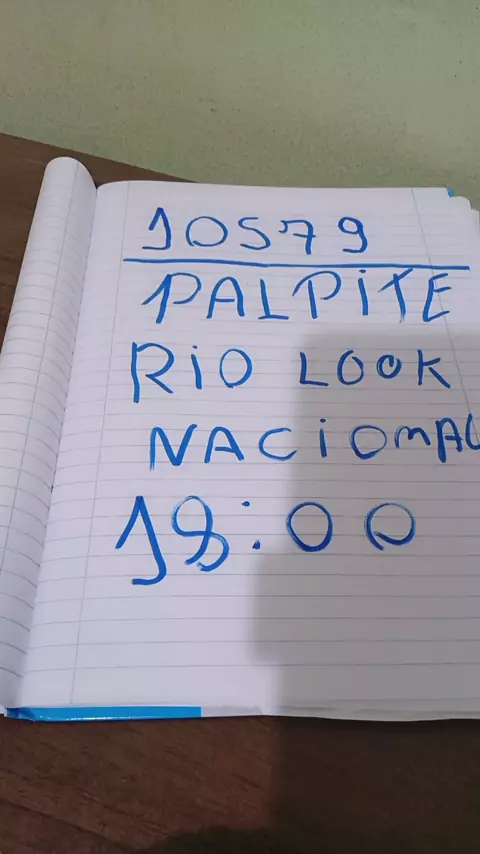 10579
PALPiTE
RiO LOOK
NACiONAL
18:00